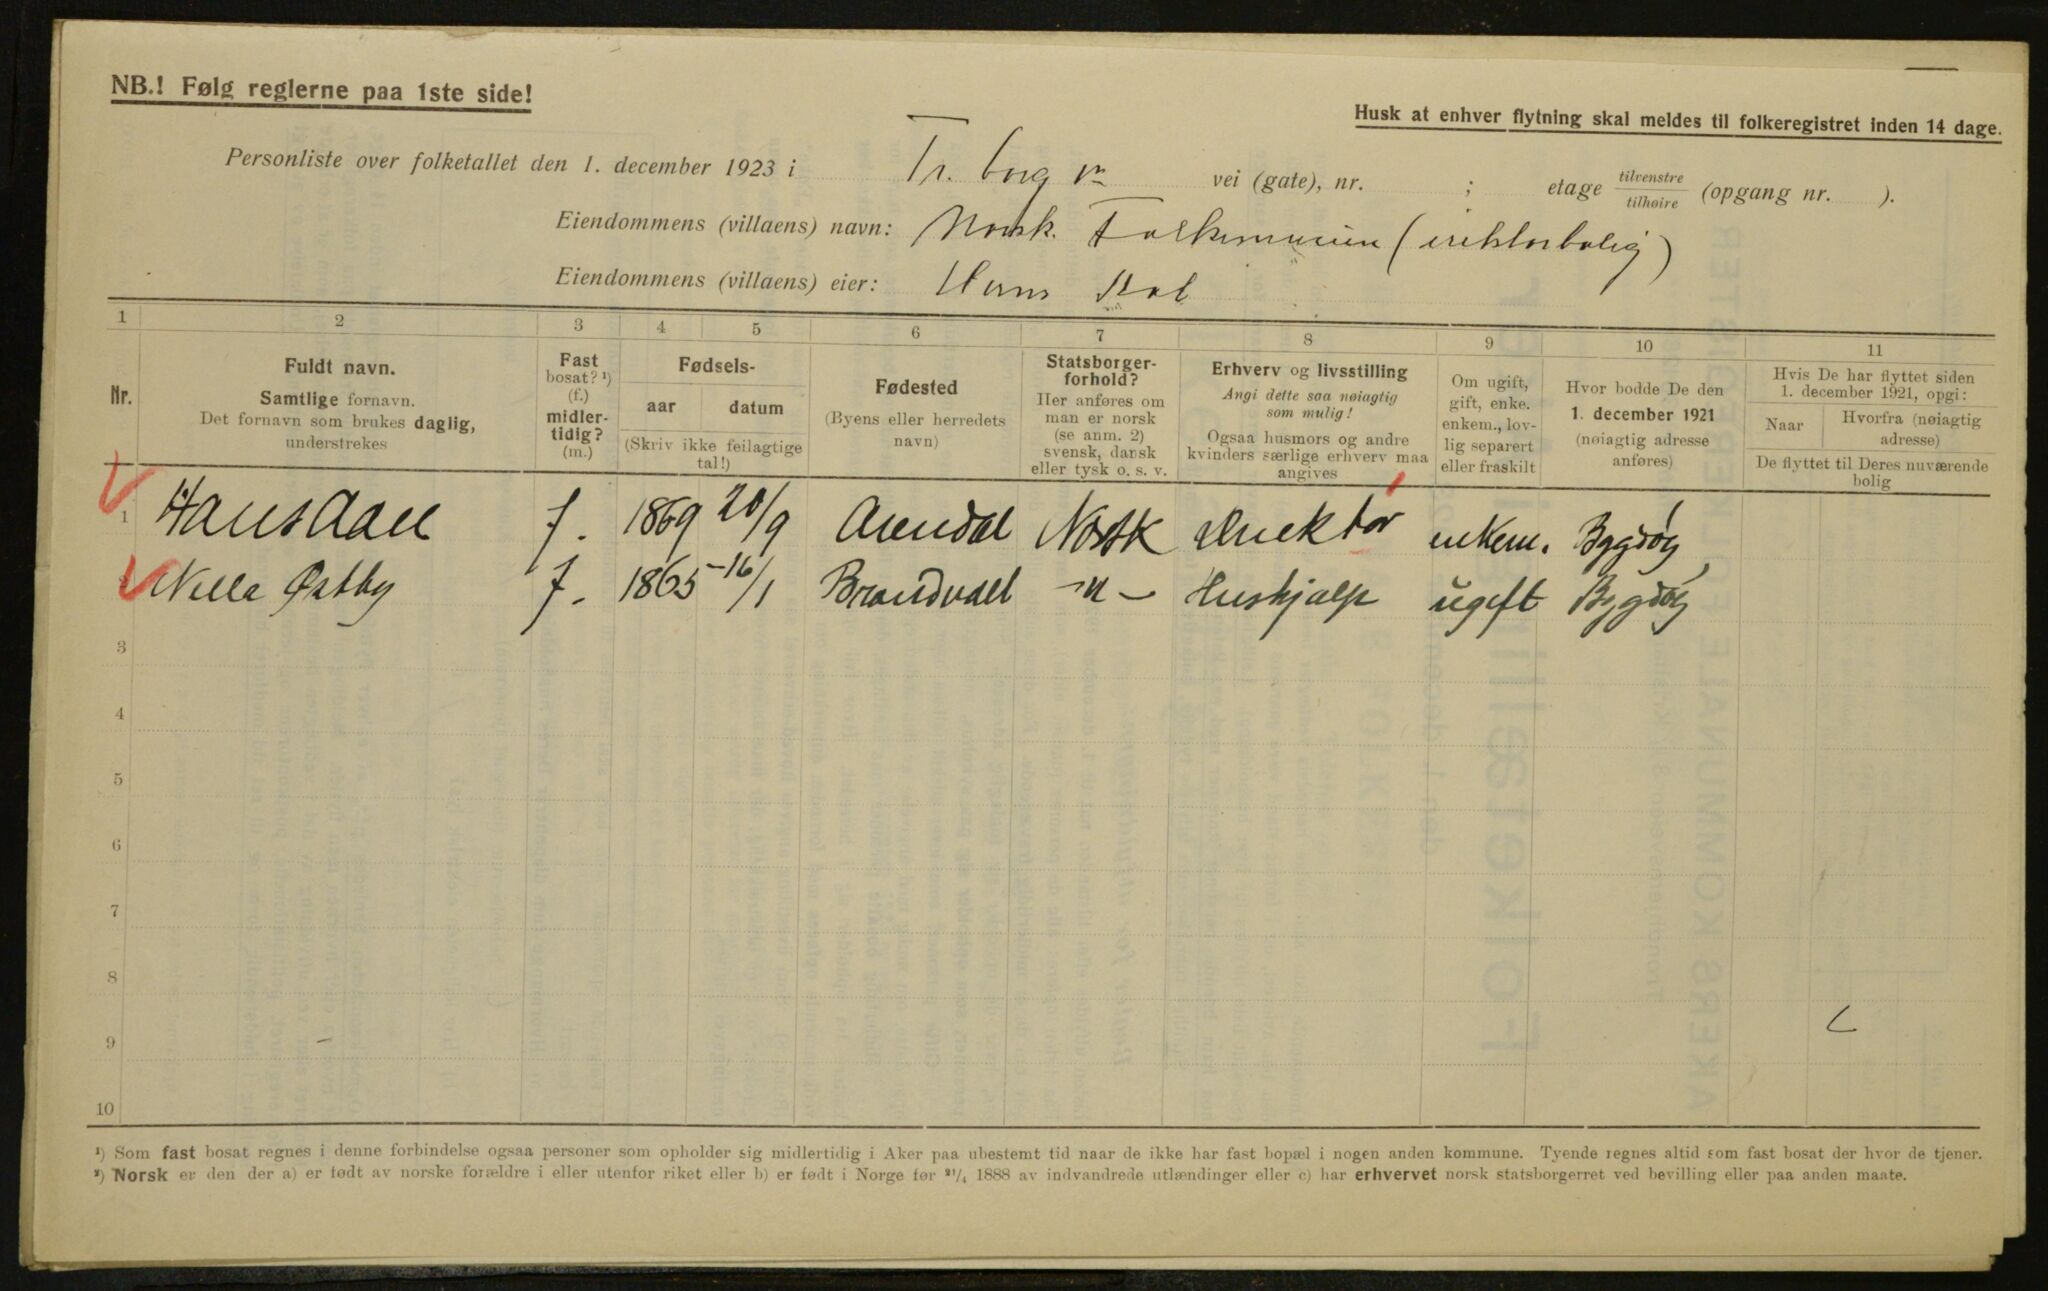 NB.! Følg reglerne paa 1ste side!
Husk at enhver flytning skal meldes til folkeregistret inden 14 dage.
Personliste over folketallet den 1. december 1923 i Fr. borg vei (gate), nr. ; etage tilvenstre tilhøire (opgang nr. ).
Eiendommens (villaens) navn: Norsk. Folkemuseum (irektorbolig)
Eiendommens (villaens) eier:
1 2 3 4 5 6 7 8 9 10 11
Nr.
Fuldt navn.
Samtlige fornavn.
Det fornavn som brukes daglig,
understrekes
Fast
bosat? ¹)
(f.)
midler-
tidig?
(m.)
Fødsels-
aar datum
(Skriv ikke feilagtige
tal!)
Fødested
(Byens eller herredets
navn)
Statsborger-
forhold?
Her anføres om
man er norsk
(se anm. 2)
svensk, dansk
eller tysk o. s. v.
Erhverv og livsstilling
Angi dette saa nøiagtig
som mulig!
Ogsaa husmors og andre
kvinders særlige erhverv maa
angives
Om ugift,
gift, enke.
enkem., lov-
lig separert
eller fraskilt
Hvor bodde De den
1. december 1921
(nøiagtig adresse
anføres)
Hvis De har flyttet siden
1. december 1921, opgi:
Naar
Hvorfra (nøiagtig
adresse)
De flyttet til Deres nuværende
bolig
1 Hans Aall f. 1869 20/9 Arendal Norsk Direktør enkem. Bygdøy
2 Nilla Østby f. 1865 16/1 Brandvall -"- Hushjælp ugift Bygdøy
3
4
5
6
7
8
9
10
¹) Som fast bosat regnes i denne forbindelse ogsaa personer som opholder sig midlertidig i Aker paa ubestemt tid naar de ikke har fast bopæl i nogen anden kommune. Tyende regnes altid som fast bosat der hvor de tjener.
²) Norsk er den der a) er født av norske forældre i eller utenfor riket eller b) er født i Norge før ²¹/₄ 1888 av indvandrede utlændinger eller c) har erhvervet norsk statsborgerret ved bevilling eller paa anden maate.